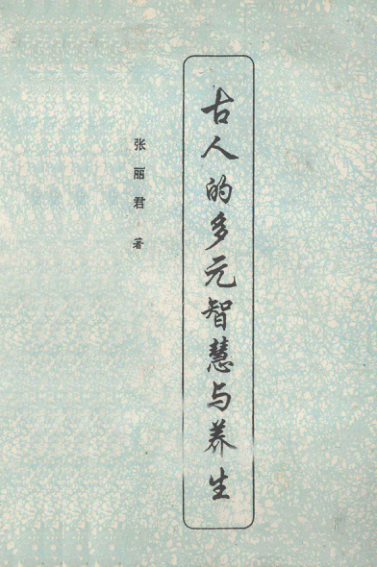 古人的多元智慧与养生
张丽君 著